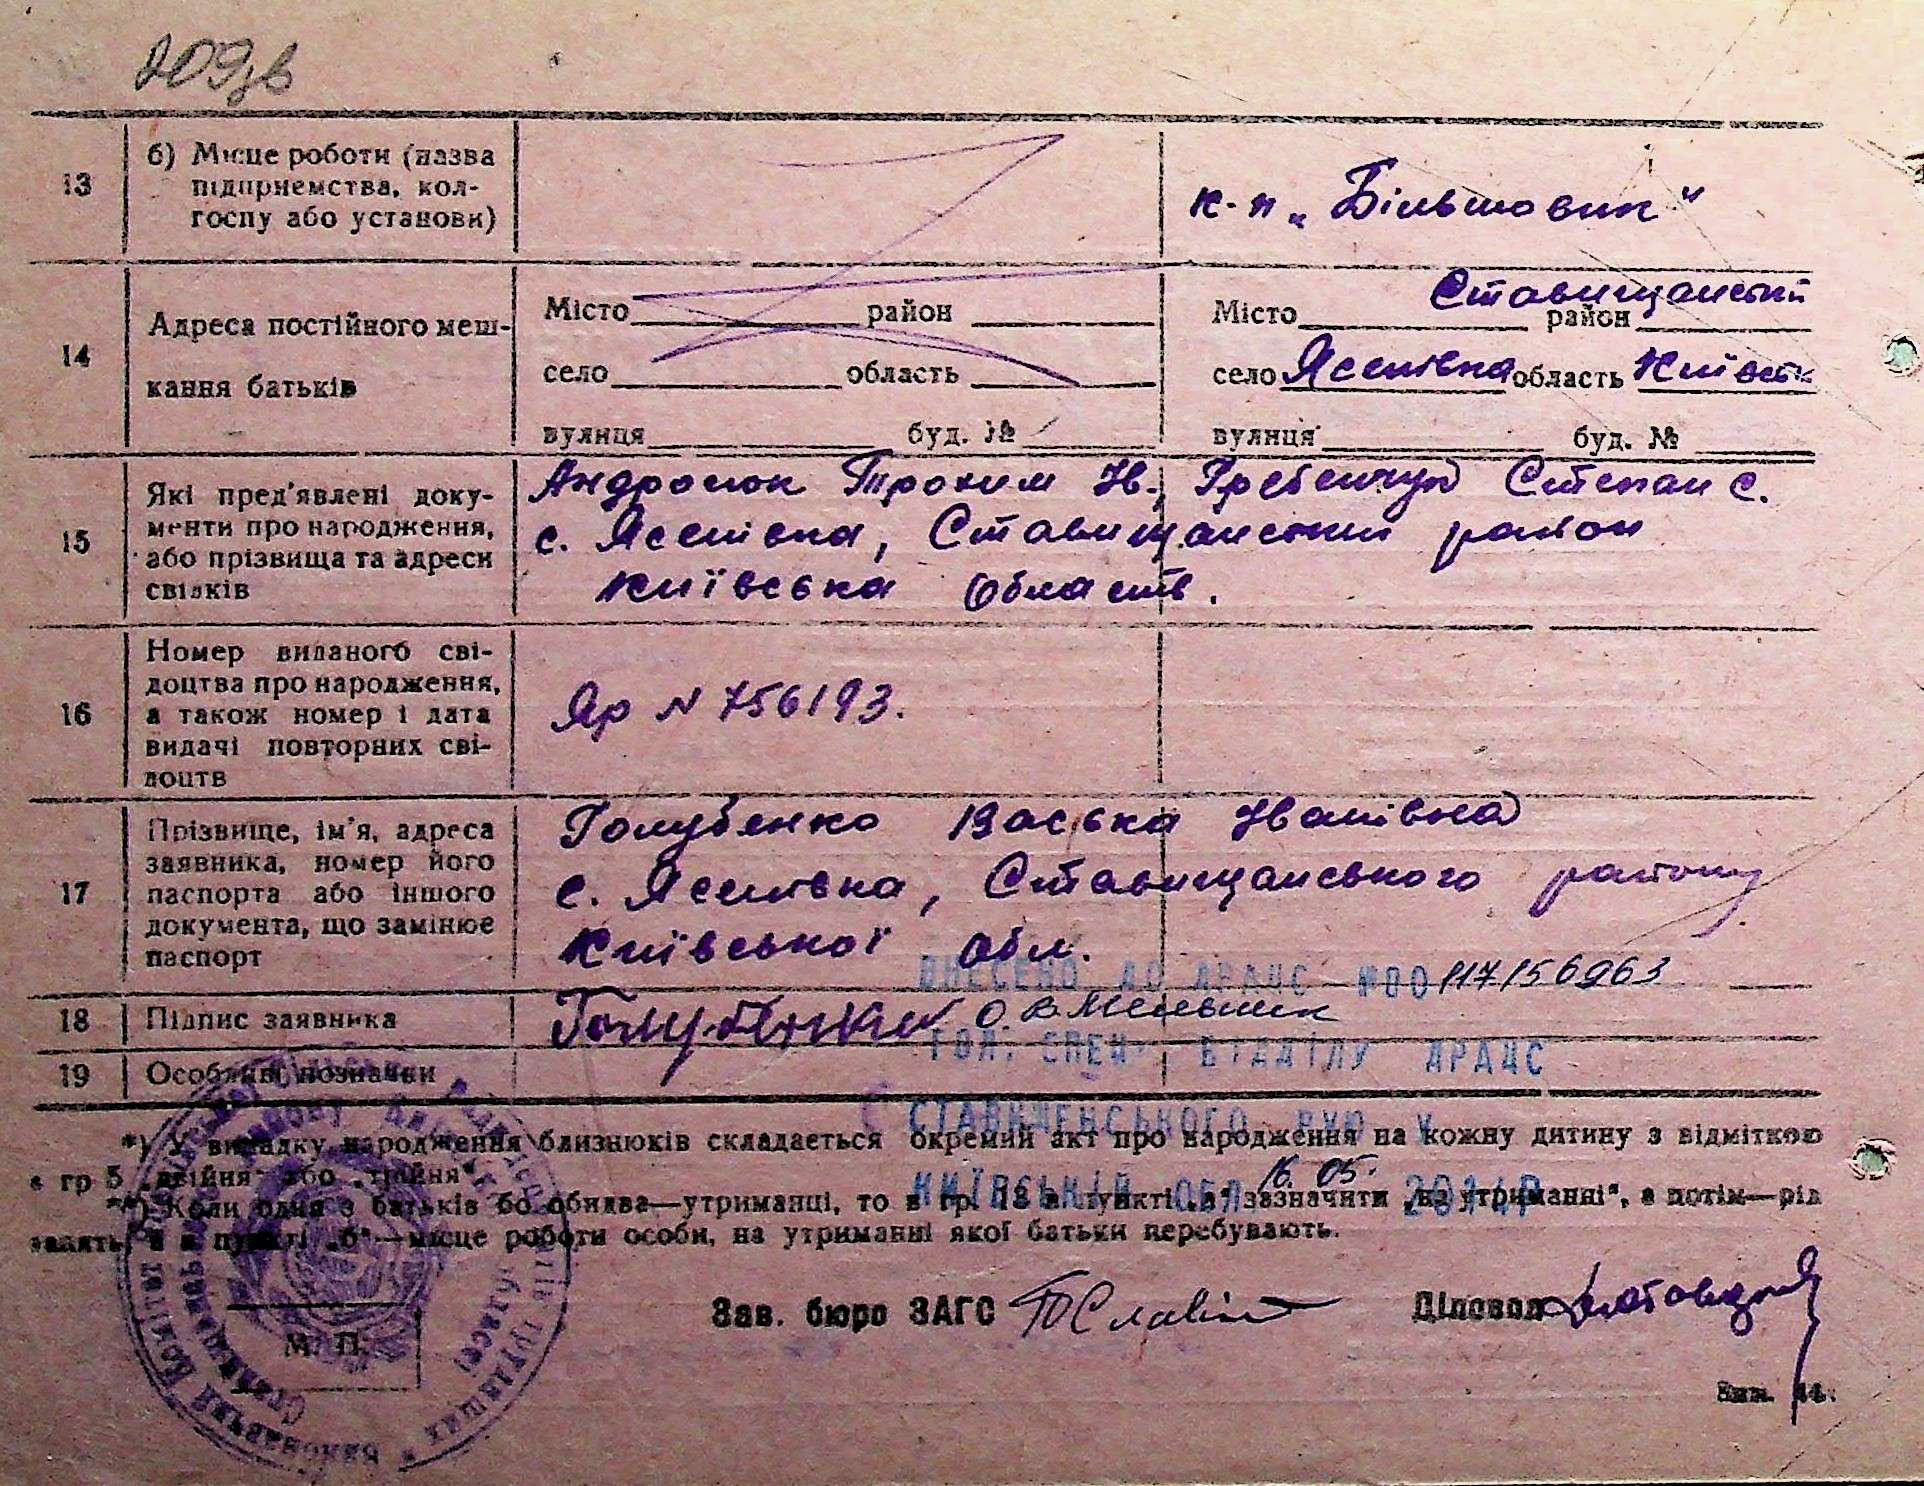 209зв
13
б) Місце роботи (назва
підприємства, кол-
госпу або установи)
к-п „Більшовик"
14
Адреса постійного меш-
кання батьків
Місто район
село область
вулиця буд. №
Місто район Ставищанський
село Ясенівка область Київськ
вулиця буд. №
15
Які пред'явлені доку-
менти про народження,
або прізвища та адреси
свідків
Андросюк Трохим Ів., Гребенчук Степан С.
с. Ясенівка, Ставищанський район
Київська область.
16
Номер виданого сві-
доцтва про народження,
а також номер і дата
видачі повторних сві-
доцтв
Яр N 756193.
17
Прізвище, ім'я, адреса
заявника, номер його
паспорта або іншого
документа, що замінює
паспорт
Голубенко Васька Іванівна
с. Ясенівка, Ставищанського району
Київської обл.
ВНЕСЕНО ДО ДРАЦС №00117156963
18
Підпис заявника
Голубенко О.В. Мельник
ГОЛ. СПЕЦ. ВІДДІЛУ ДРАЦС
19
Особливі позначки
СТАВИЩЕНСЬКОГО РУЮ У
*) У випадку народження близнюків складається окремий акт про народження на кожну дитину з відміткою
в гр 5 „двійня" або „трійня".
КИЇВСЬКІЙ ОБЛ. 16.05. 2014Р
**) Коли один з батьків або обидва—утриманці, то в гр. 13 в пункті „а" зазначити „на утриманні", а потім—рід
занять, а в пункті „б"—місце роботи особи, на утриманні якої батьки перебувають.
М. П.
Зав. бюро ЗАГС
Діловод